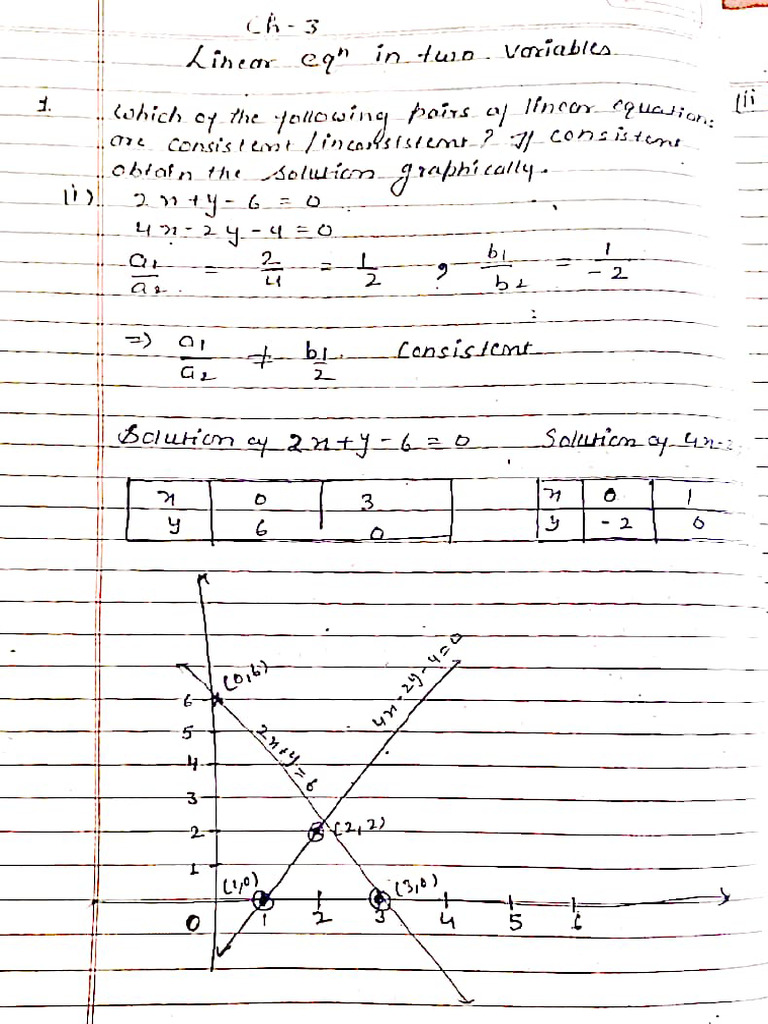 Ch-3
Linear eqn in two variables
1. Which of the following pairs of linear equations
are consistent/inconsistent? If consistent
obtain the solution graphically.
(i) 2x+y-6=0
4x-2y-4=0
a1/a2 = 2/4 = 1/2 , b1/b2 = 1/-2
=> a1/a2 ≠ b1/2 Consistent
Solution of 2x+y-6=0 Solution of 4x-2
x 0 3 x 0 1
y 6 0 y -2 0
(ii
(0,6)
4x-2y-4=0
2x+y=6
6
5
4
3
2 (2,2)
1
(1,0) (3,0)
0 1 2 3 4 5 6